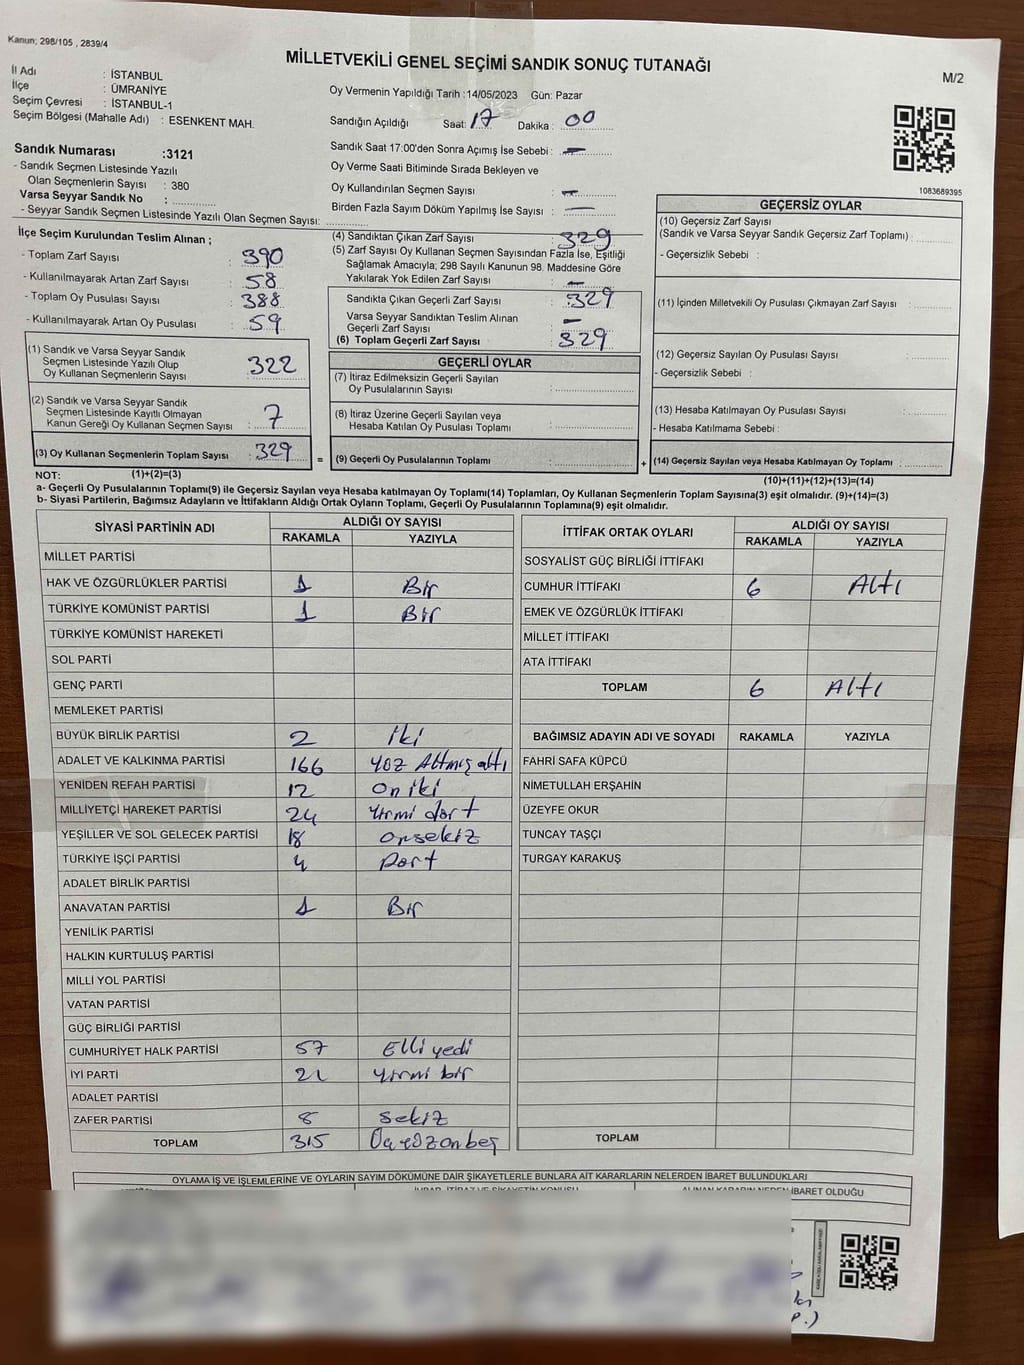 Kanun; 298/105 , 2839/4
MİLLETVEKİLİ GENEL SEÇİMİ SANDIK SONUÇ TUTANAĞI
M/2
İl Adı : İSTANBUL
İlçe : ÜMRANİYE
Seçim Çevresi : İSTANBUL-1
Seçim Bölgesi (Mahalle Adı) : ESENKENT MAH.
Sandık Numarası :3121
- Sandık Seçmen Listesinde Yazılı
Olan Seçmenlerin Sayısı : 380
Varsa Seyyar Sandık No :
- Seyyar Sandık Seçmen Listesinde Yazılı Olan Seçmen Sayısı:
Oy Vermenin Yapıldığı Tarih :14/05/2023 Gün: Pazar
Sandığın Açıldığı Saat: 17 Dakika : 00
Sandık Saat 17:00'den Sonra Açımış İse Sebebi : —
Oy Verme Saati Bitiminde Sırada Bekleyen ve
Oy Kullandırılan Seçmen Sayısı : —
Birden Fazla Sayım Döküm Yapılmış İse Sayısı : —
1083689395
İlçe Seçim Kurulundan Teslim Alınan ;
- Toplam Zarf Sayısı : 390
- Kullanılmayarak Artan Zarf Sayısı : 58
- Toplam Oy Pusulası Sayısı : 388
- Kullanılmayarak Artan Oy Pusulası : 59
(1) Sandık ve Varsa Seyyar Sandık
Seçmen Listesinde Yazılı Olup
Oy Kullanan Seçmenlerin Sayısı : 322
(2) Sandık ve Varsa Seyyar Sandık
Seçmen Listesinde Kayıtlı Olmayan
Kanun Gereği Oy Kullanan Seçmen Sayısı : 7
(3) Oy Kullanan Seçmenlerin Toplam Sayısı : 329
(1)+(2)=(3)
(4) Sandıktan Çıkan Zarf Sayısı : 329
(5) Zarf Sayısı Oy Kullanan Seçmen Sayısından Fazla İse, Eşitliği
Sağlamak Amacıyla; 298 Sayılı Kanunun 98. Maddesine Göre
Yakılarak Yok Edilen Zarf Sayısı : —
Sandıkta Çıkan Geçerli Zarf Sayısı : 329
Varsa Seyyar Sandıktan Teslim Alınan
Geçerli Zarf Sayısı : —
(6) Toplam Geçerli Zarf Sayısı : 329
GEÇERLİ OYLAR
(7) İtiraz Edilmeksizin Geçerli Sayılan
Oy Pusulalarının Sayısı :
(8) İtiraz Üzerine Geçerli Sayılan veya
Hesaba Katılan Oy Pusulası Toplamı :
= (9) Geçerli Oy Pusulalarının Toplamı : +
GEÇERSİZ OYLAR
(10) Geçersiz Zarf Sayısı
(Sandık ve Varsa Seyyar Sandık Geçersiz Zarf Toplamı) :
- Geçersizlik Sebebi :
(11) İçinden Milletvekili Oy Pusulası Çıkmayan Zarf Sayısı :
(12) Geçersiz Sayılan Oy Pusulası Sayısı :
- Geçersizlik Sebebi :
(13) Hesaba Katılmayan Oy Pusulası Sayısı :
- Hesaba Katılmama Sebebi :
(14) Geçersiz Sayılan veya Hesaba Katılmayan Oy Toplamı :
(10)+(11)+(12)+(13)=(14)
NOT:
a- Geçerli Oy Pusulalarının Toplamı(9) ile Geçersiz Sayılan veya Hesaba katılmayan Oy Toplamı(14) Toplamları, Oy Kullanan Seçmenlerin Toplam Sayısına(3) eşit olmalıdır. (9)+(14)=(3)
b- Siyasi Partilerin, Bağımsız Adayların ve İttifakların Aldığı Ortak Oyların Toplamı, Geçerli Oy Pusulalarının Toplamına(9) eşit olmalıdır.
SİYASİ PARTİNİN ADI ALDIĞI OY SAYISI
RAKAMLA YAZIYLA
MİLLET PARTİSİ
HAK VE ÖZGÜRLÜKLER PARTİSİ 1 Bir
TÜRKİYE KOMÜNİST PARTİSİ 1 Bir
TÜRKİYE KOMÜNİST HAREKETİ
SOL PARTİ
GENÇ PARTİ
MEMLEKET PARTİSİ
BÜYÜK BİRLİK PARTİSİ 2 iki
ADALET VE KALKINMA PARTİSİ 166 yüz Altmış altı
YENİDEN REFAH PARTİSİ 12 on iki
MİLLİYETÇİ HAREKET PARTİSİ 24 yirmi dört
YEŞİLLER VE SOL GELECEK PARTİSİ 18 onsekiz
TÜRKİYE İŞÇİ PARTİSİ 4 Dört
ADALET BİRLİK PARTİSİ
ANAVATAN PARTİSİ 1 Bir
YENİLİK PARTİSİ
HALKIN KURTULUŞ PARTİSİ
MİLLİ YOL PARTİSİ
VATAN PARTİSİ
GÜÇ BİRLİĞİ PARTİSİ
CUMHURİYET HALK PARTİSİ 57 Elli yedi
İYİ PARTİ 21 yirmi bir
ADALET PARTİSİ
ZAFER PARTİSİ 8 sekiz
TOPLAM 315 Üçyüzonbeş
İTTİFAK ORTAK OYLARI ALDIĞI OY SAYISI
RAKAMLA YAZIYLA
SOSYALİST GÜÇ BİRLİĞİ İTTİFAKI
CUMHUR İTTİFAKI 6 Altı
EMEK VE ÖZGÜRLÜK İTTİFAKI
MİLLET İTTİFAKI
ATA İTTİFAKI
TOPLAM 6 Altı
BAĞIMSIZ ADAYIN ADI VE SOYADI RAKAMLA YAZIYLA
FAHRİ SAFA KÜPCÜ
NİMETULLAH ERŞAHİN
ÜZEYFE OKUR
TUNCAY TAŞÇI
TURGAY KARAKUŞ
TOPLAM
OYLAMA İŞ VE İŞLEMLERİNE VE OYLARIN SAYIM DÖKÜMÜNE DAİR ŞİKAYETLERLE BUNLARA AİT KARARLARIN NELERDEN İBARET BULUNDUKLARI
İHBAR, İTİRAZ VE ŞİKAYETİN KONUSU ALINAN KARARIN NEDEN İBARET OLDUĞU